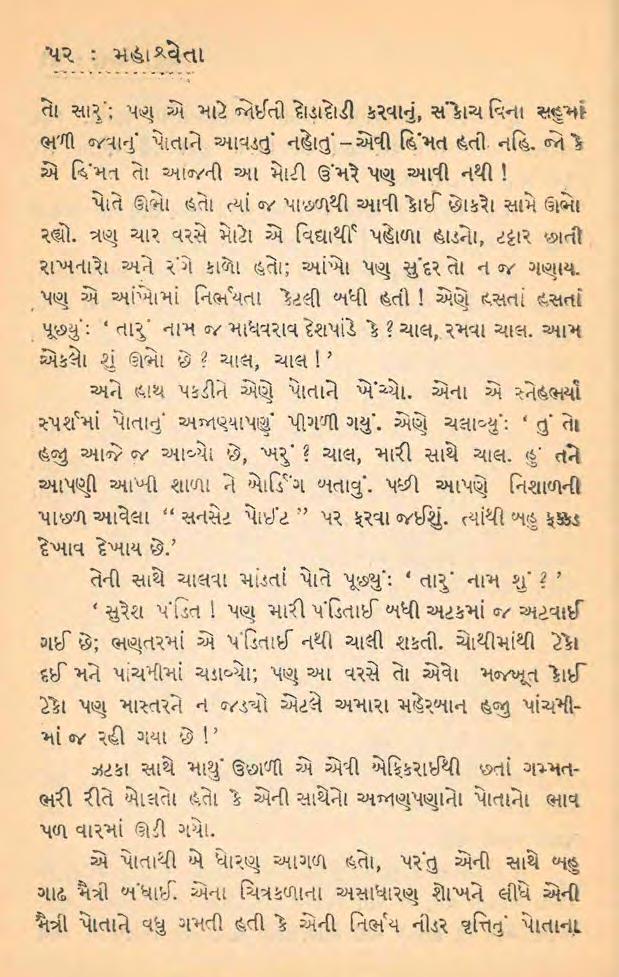 ૫૨ : મહાશ્વેતા
તો સારું; પણ એ માટે જોઈતી દોડાદોડી કરવાનું, સંકોચ વિના સહુમાં
ભળી જવાનું પોતાને આવડતું નહોતું – એવી હિંમત હતી નહિ. જો કે
એ હિંમત તો આજની આ મોટી ઉંમરે પણ આવી નથી !
પોતે ઊભો હતો ત્યાં જ પાછળથી આવી કોઈ છોકરો સામે ઊભો
રહ્યો. ત્રણ ચાર વરસે મોટો એ વિદ્યાર્થી પહોળા હાડનો, ટટ્ટાર છાતી
રાખનારો અને રંગે કાળો હતો; આંખો પણ સુંદર તો ન જ ગણાય.
પણ એ આંખોમાં નિર્ભયતા કેટલી બધી હતી ! એણે હસતાં હસતાં
પૂછ્યું: ‘ તારું નામ જ માધવરાવ દેશપાંડે કે ? ચાલ, રમવા ચાલ. આમ
એકલો શું ઊભો છે ? ચાલ, ચાલ ! ’
અને હાથ પકડીને એણે પોતાને ખેંચ્યો. એના એ સ્નેહભર્યા
સ્પર્શમાં પોતાનું અજાણ્યાપણું પીગળી ગયું. એણે ચલાવ્યું: ‘ તું તો
હજુ આજે જ આવ્યો છે, ખરું ? ચાલ, મારી સાથે ચાલ. હું તને
આપણી આખી શાળા ને બોર્ડિંગ બતાવું. પછી આપણે નિશાળની
પાછળ આવેલા “ સનસેટ પોઈંટ ” પર ફરવા જઈશું. ત્યાંથી બહુ ફક્કડ
દેખાવ દેખાય છે.’
તેની સાથે ચાલવા માંડતાં પોતે પૂછ્યું: ‘ તારું નામ શું ? ’
‘ સુરેશ પંડિત ! પણ મારી પંડિતાઈ બધી અટકમાં જ અટવાઈ
ગઈ છે; ભણતરમાં એ પંડિતાઈ નથી ચાલી શકતી. ચોથીમાંથી ટેકો
દઈ મને પાંચમીમાં ચડાવ્યો; પણ આ વરસે તો એવો મજબૂત કોઈ
ટેકો પણ માસ્તરને ન જડ્યો એટલે અમારા મહેરબાન હજુ પાંચમી-
માં જ રહી ગયા છે ! ’
ઝટકા સાથે માથું ઉછાળી એ એવી બેફિકરાઈથી છતાં ગમ્મત-
ભરી રીતે બોલતો હતો કે એની સાથેનો અજાણપણાનો પોતાનો ભાવ
પળ વારમાં ઊડી ગયો.
એ પોતાથી બે ધોરણ આગળ હતો, પરંતુ એની સાથે બહુ
ગાઢ મૈત્રી બંધાઈ. એના ચિત્રકળાના અસાધારણ શોખને લીધે એની
મૈત્રી પોતાને વધુ ગમતી હતી કે એની નિર્ભય નીડર વૃત્તિનું પોતાના